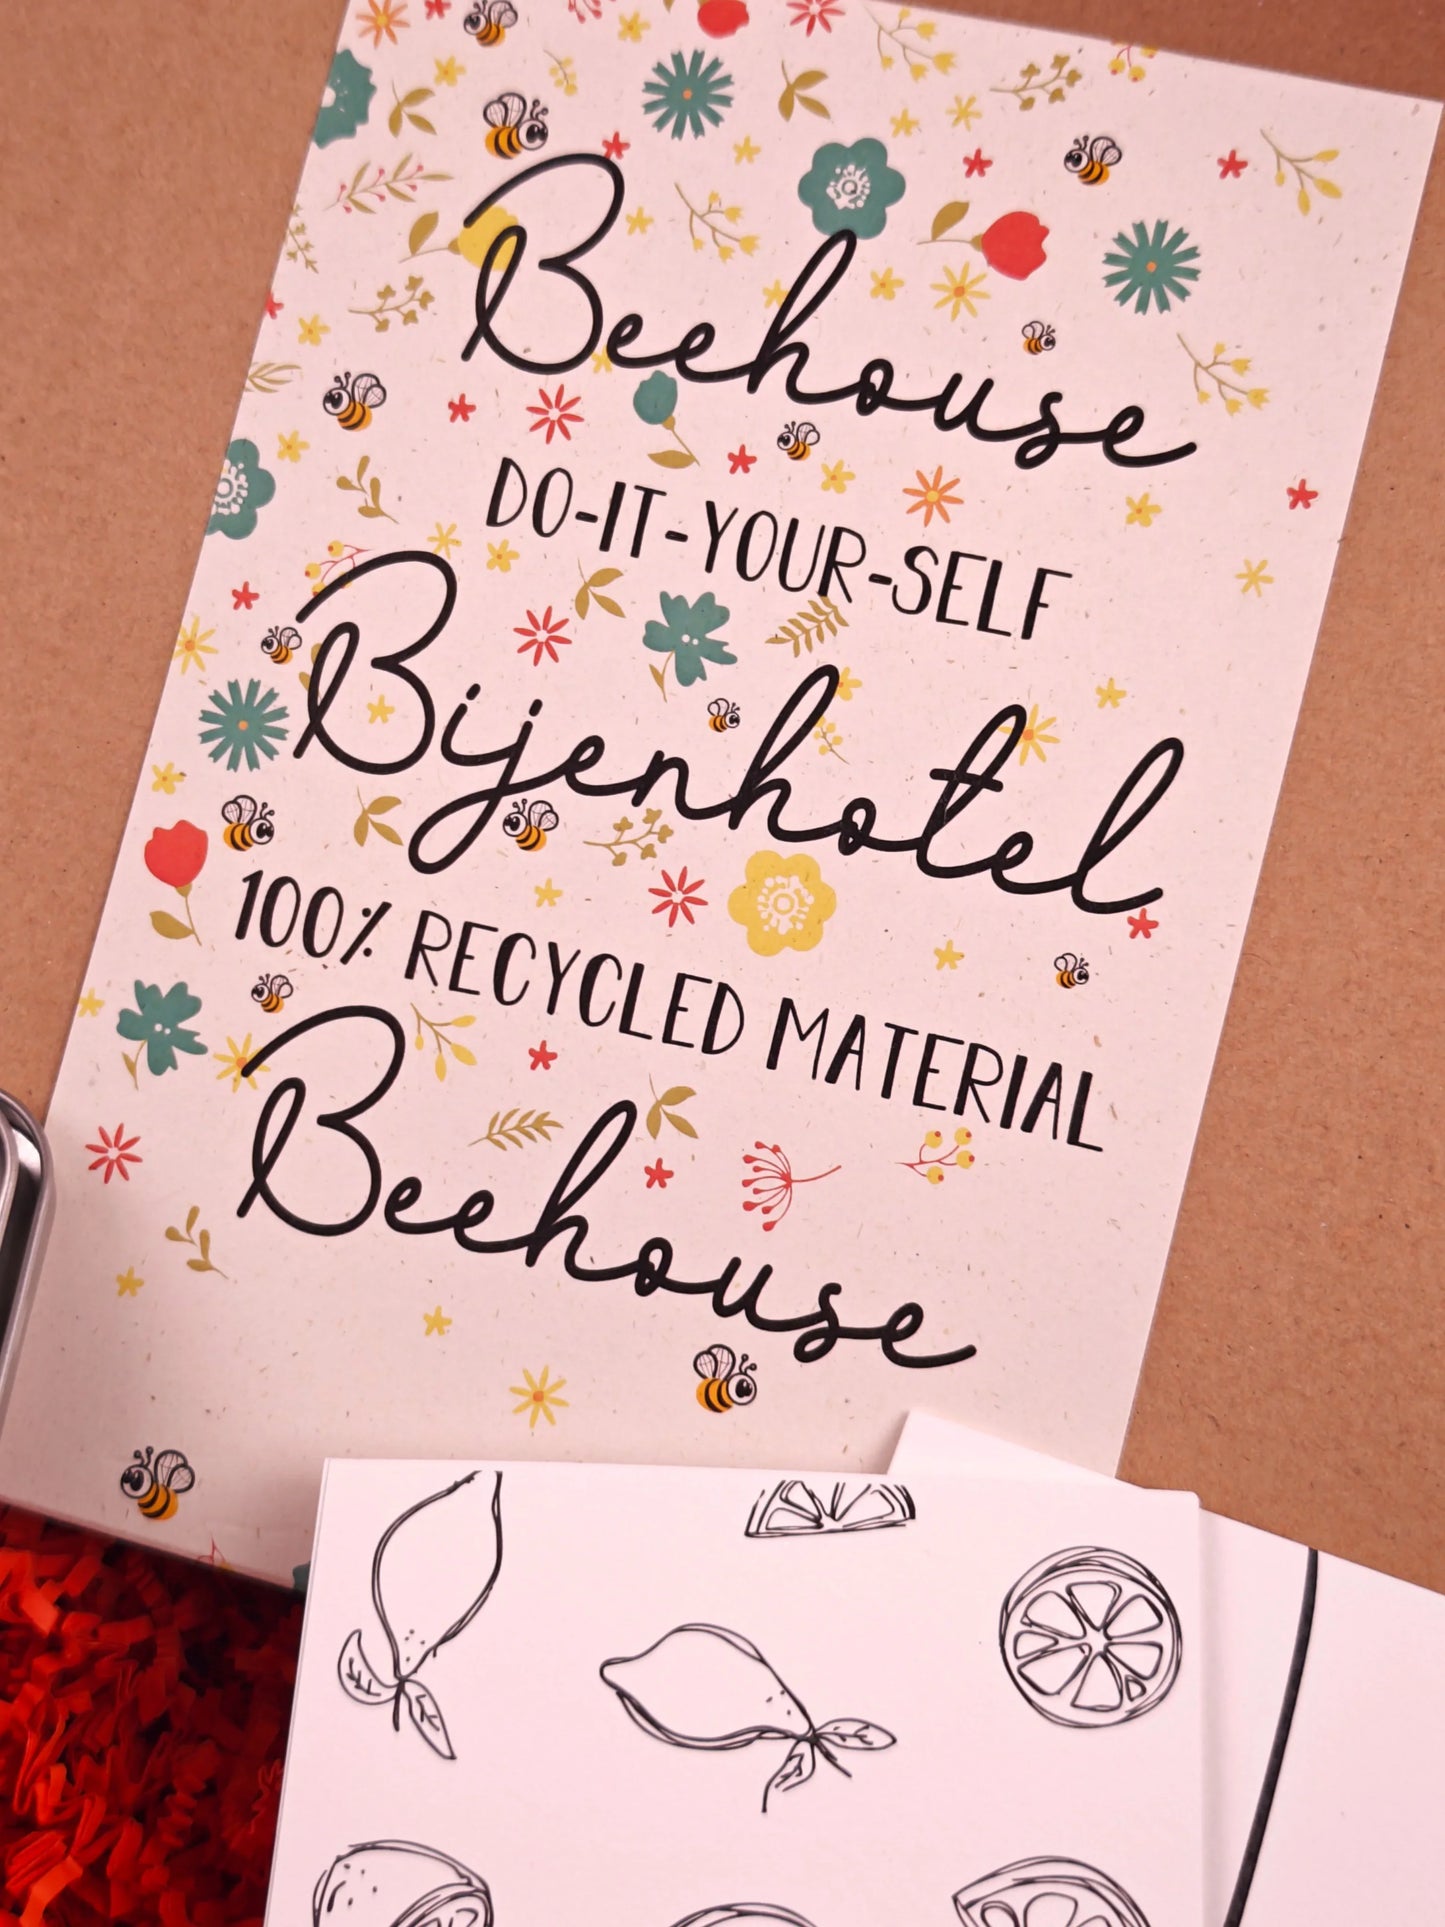 Beehouse
DO-IT-YOUR-SELF
Bijenhotel
100% RECYCLED MATERIAL
Beehouse